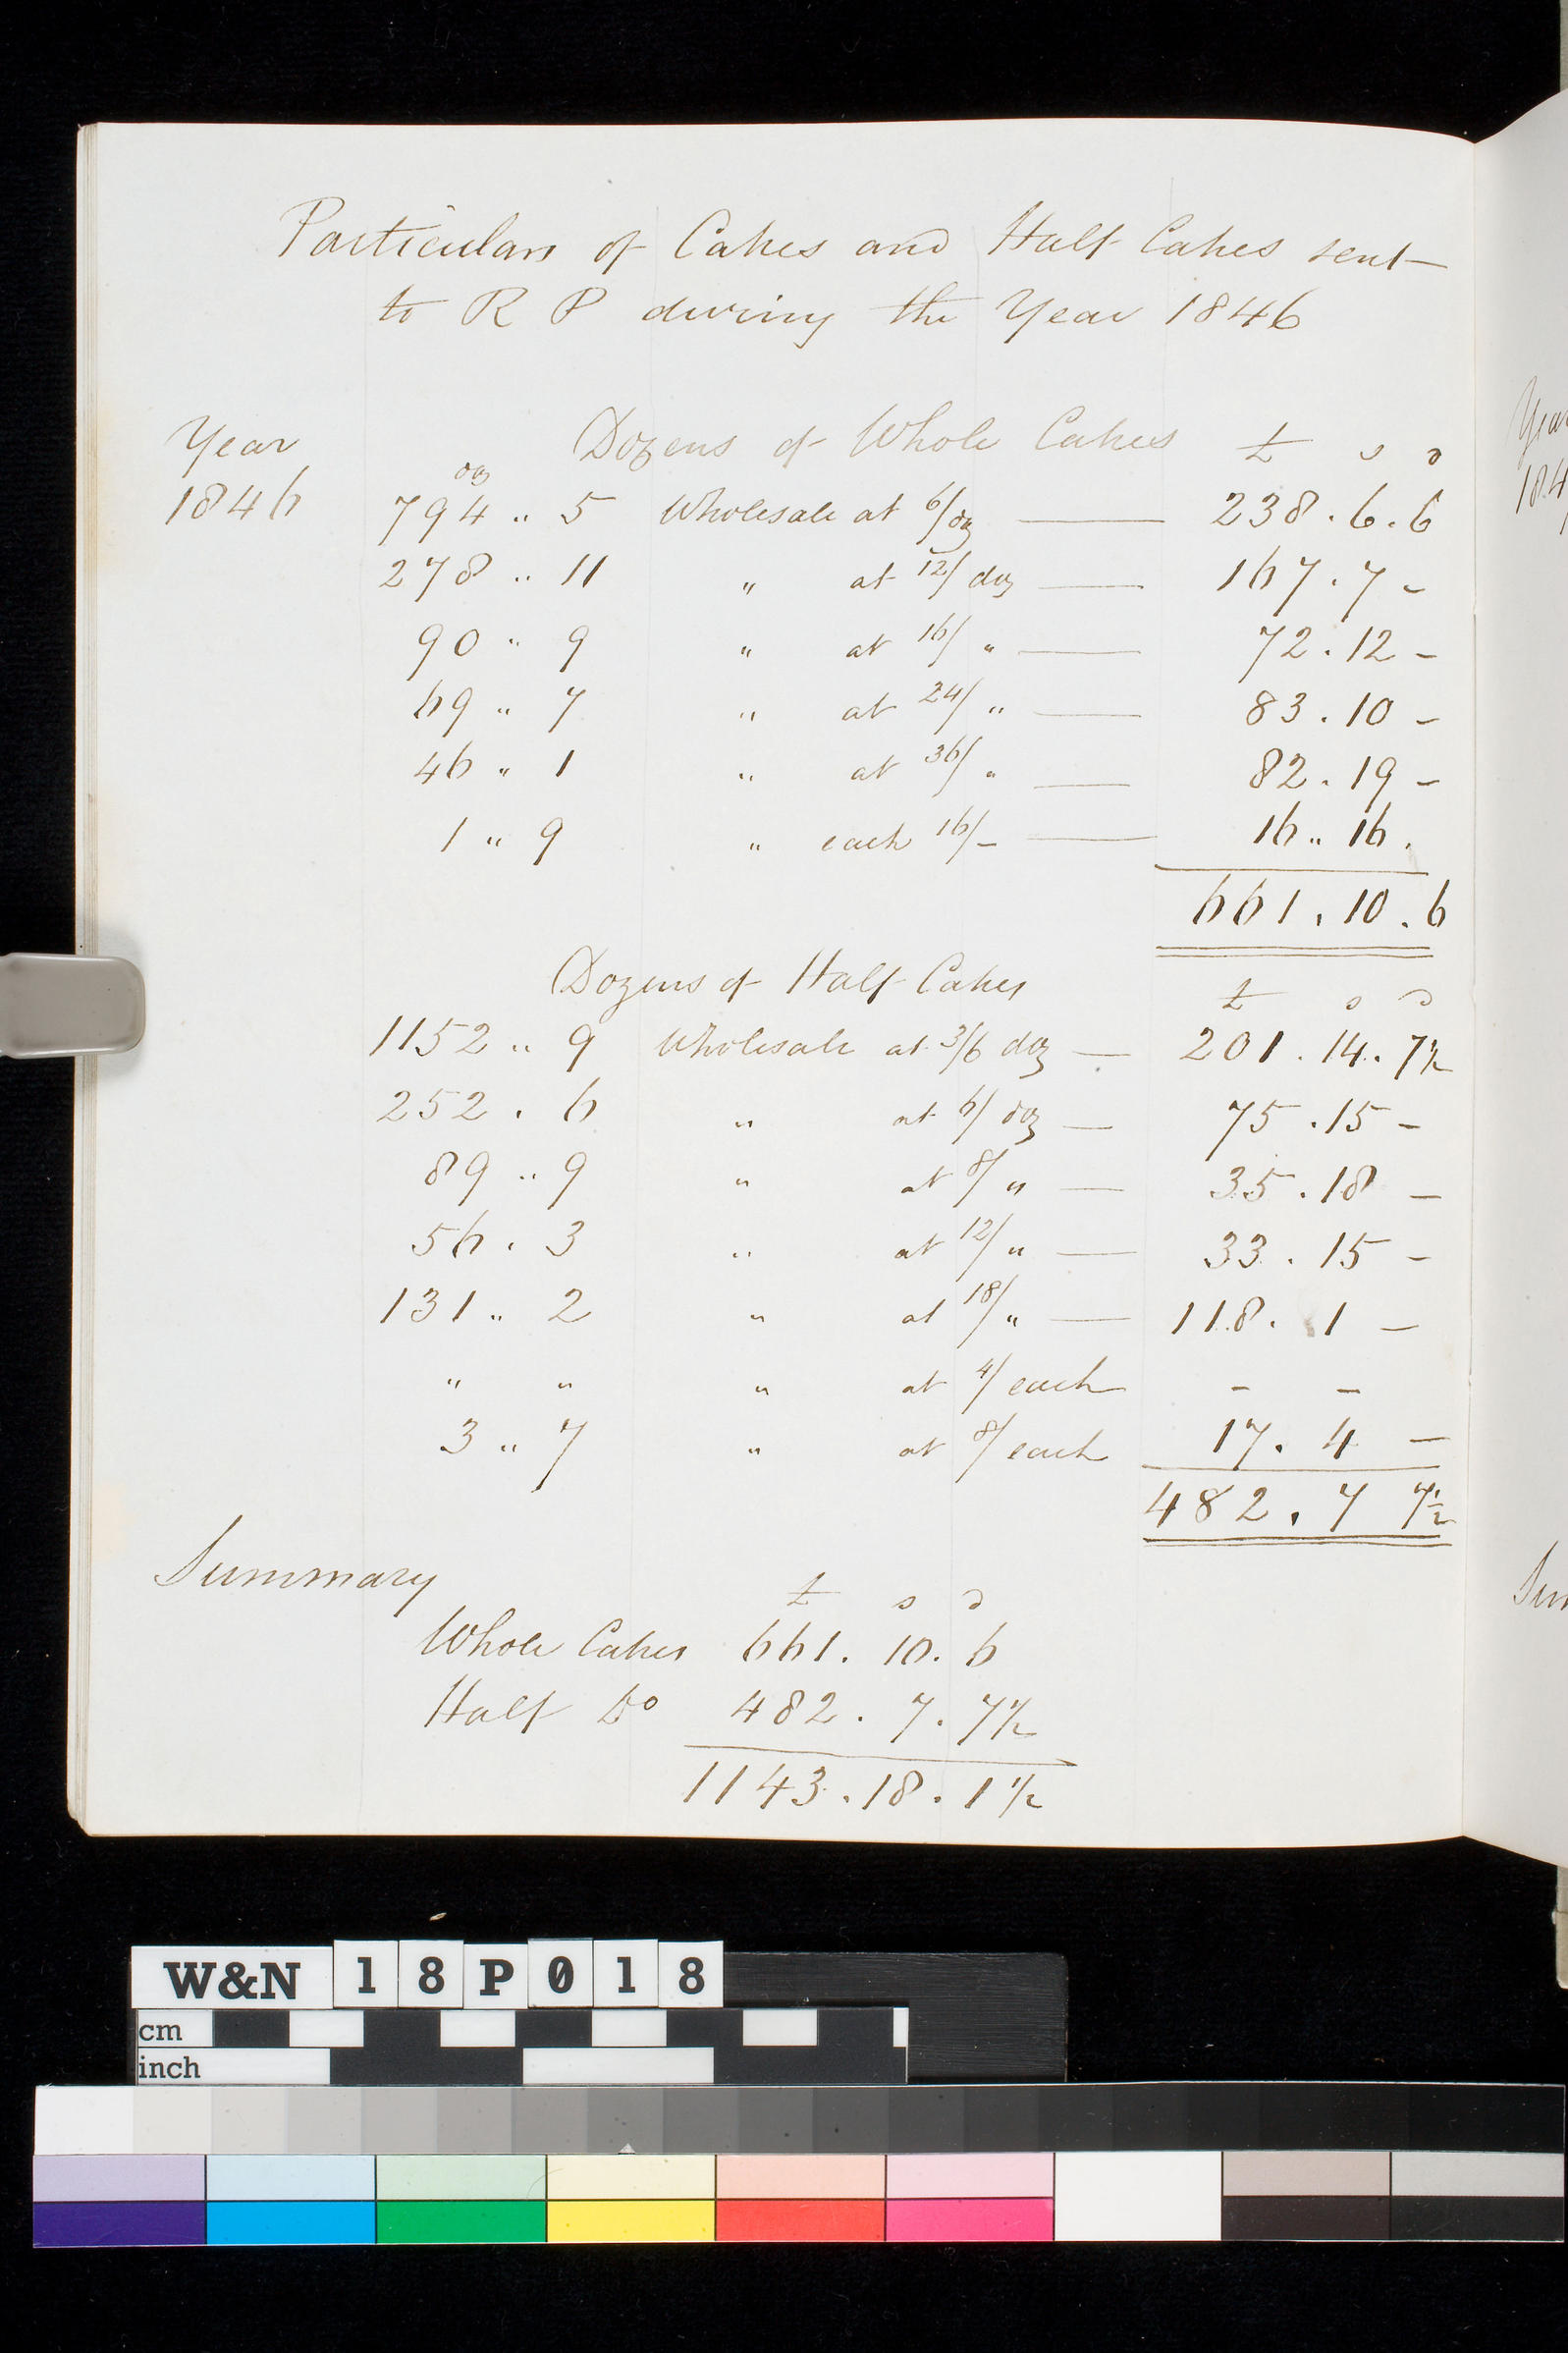 Particulars of Cakes and Half Cakes sent
to R P during the Year 1846
Year Dozens of Whole Cakes £ s d
doz
1846 794 „ 5 Wholesale at 6/doz — 238 . 6 . 6
278 „ 11 „ at 12/ doz — 167 . 7 -
90 „ 9 „ at 16/ „ — 72 . 12 -
69 „ 7 „ at 24/ „ — 83 . 10 -
46 „ 1 „ at 36/ „ — 82 . 19 -
1 „ 9 „ each 16/- — 16 „ 16 .
661 . 10 . 6
Dozens of Half Cakes £ s d
1152 „ 9 Wholesale at 3/6 doz — 201 . 14 . 7½
252 . 6 „ at 6/ doz — 75 . 15 -
89 „ 9 „ at 8/ „ — 35 . 18 -
56 . 3 „ at 12/ „ — 33 . 15 -
131 „ 2 „ at 18/ „ — 118 . 1 -
„ „ „ at 4/ each - -
3 „ 7 „ at 8/ each 17 . 4 -
482 . 7 7½
Summary £ s d
Whole Cakes 661 . 10 . 6
Half Do 482 . 7 . 7½
1143 . 18 . 1½
Year
184
Sum
W&N 18P018
cm
inch